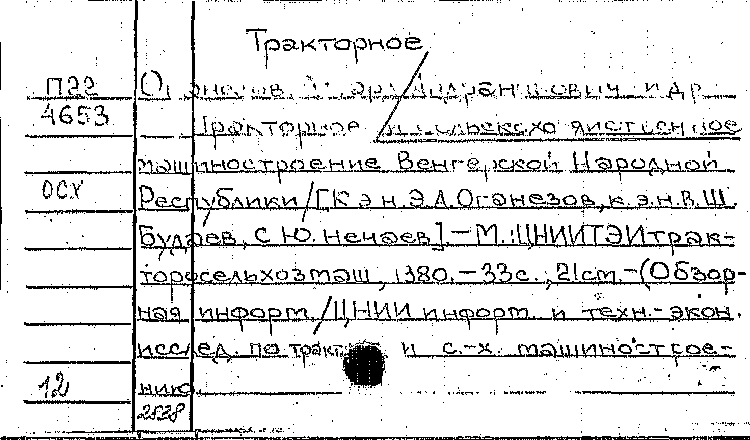 Тракторное
П22
4653
ОСХ
12
и др.
Тракторное и сельскохозяйственное
машиностроение Венгерской Народной
Республики/[К.э.н. Э.А.Оганезов, к.э.н. В.Ш.
Будаев, С.Ю. Нечаев].–М.:ЦНИИТЭИтрак-
торосельхозмаш, 1980.–33с., 21см.–(Обзор-
ная информ./ЦНИИ информ. и техн.-экон.
исслед. по тракт. и с.-х. машинострое-
нию.
2828